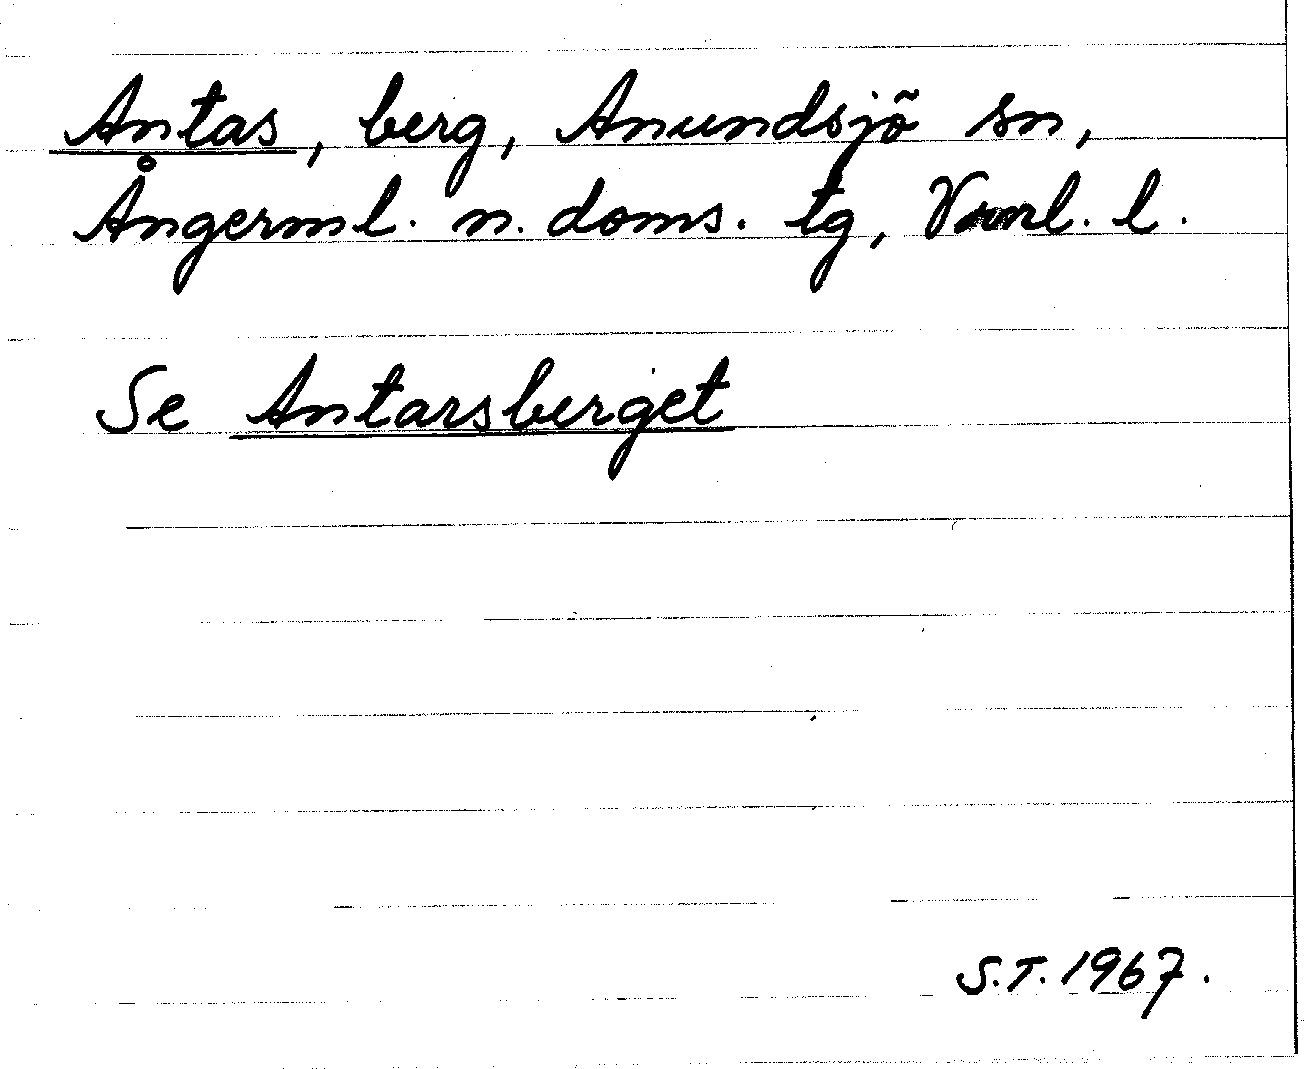 Antas, berg, Anundsjö sn,
Ångerml. n. doms. tg, Vnnl. l.
Se Antarsberget
S.T. 1967.